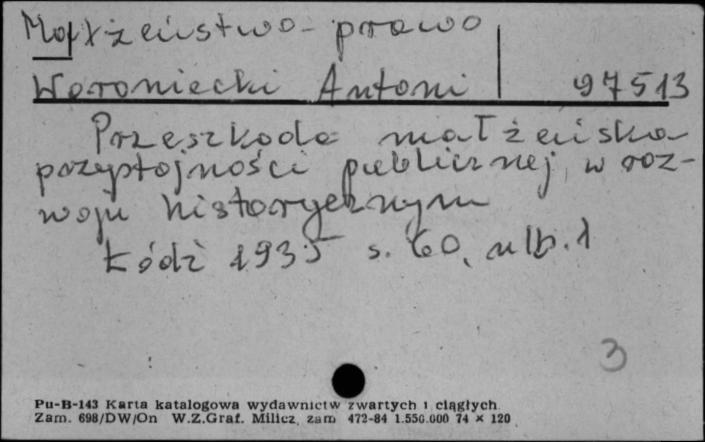 Małżeństwo - prawo
Woroniecki Antoni 97513
Przeszkoda małżeńska
przystojności publicznej, w roz-
woju historycznym
Łódź 1935 s. 60, nlb. 1
3
Pu-B-143 Karta katalogowa wydawnictw zwartych i ciągłych
Zam. 698/DW/On W.Z.Graf. Milicz, zam 472-84 1.550.000 74 × 120